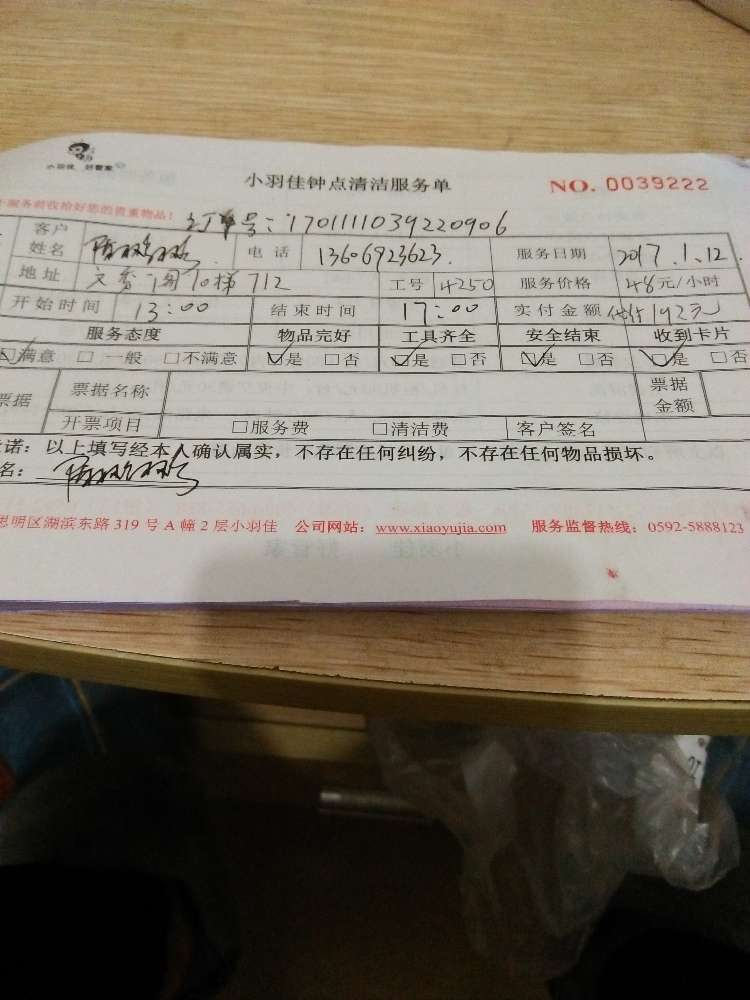 小羽佳 好管家
小羽佳钟点清洁服务单 NO. 0039222
服务前收拾好您的贵重物品! 订单号:1701111039220906
客户姓名 电话 13606923623 服务日期 2017.1.12
地址 文香 10梯712 工号 4250 服务价格 48元/小时
开始时间 13:00 结束时间 17:00 实付金额 192元
服务态度 物品完好 工具齐全 安全结束 收到卡片
☑满意 □一般 □不满意 ☑是 □否 ☑是 □否 ☑是 □否 ☑是 □否
票据 票据名称 票据金额
开票项目 □服务费 □清洁费 客户签名
诺:以上填写经本人确认属实,不存在任何纠纷,不存在任何物品损坏。
名:
思明区湖滨东路319号A幢2层小羽佳 公司网站:www.xiaoyujia.com 服务监督热线:0592-5888123